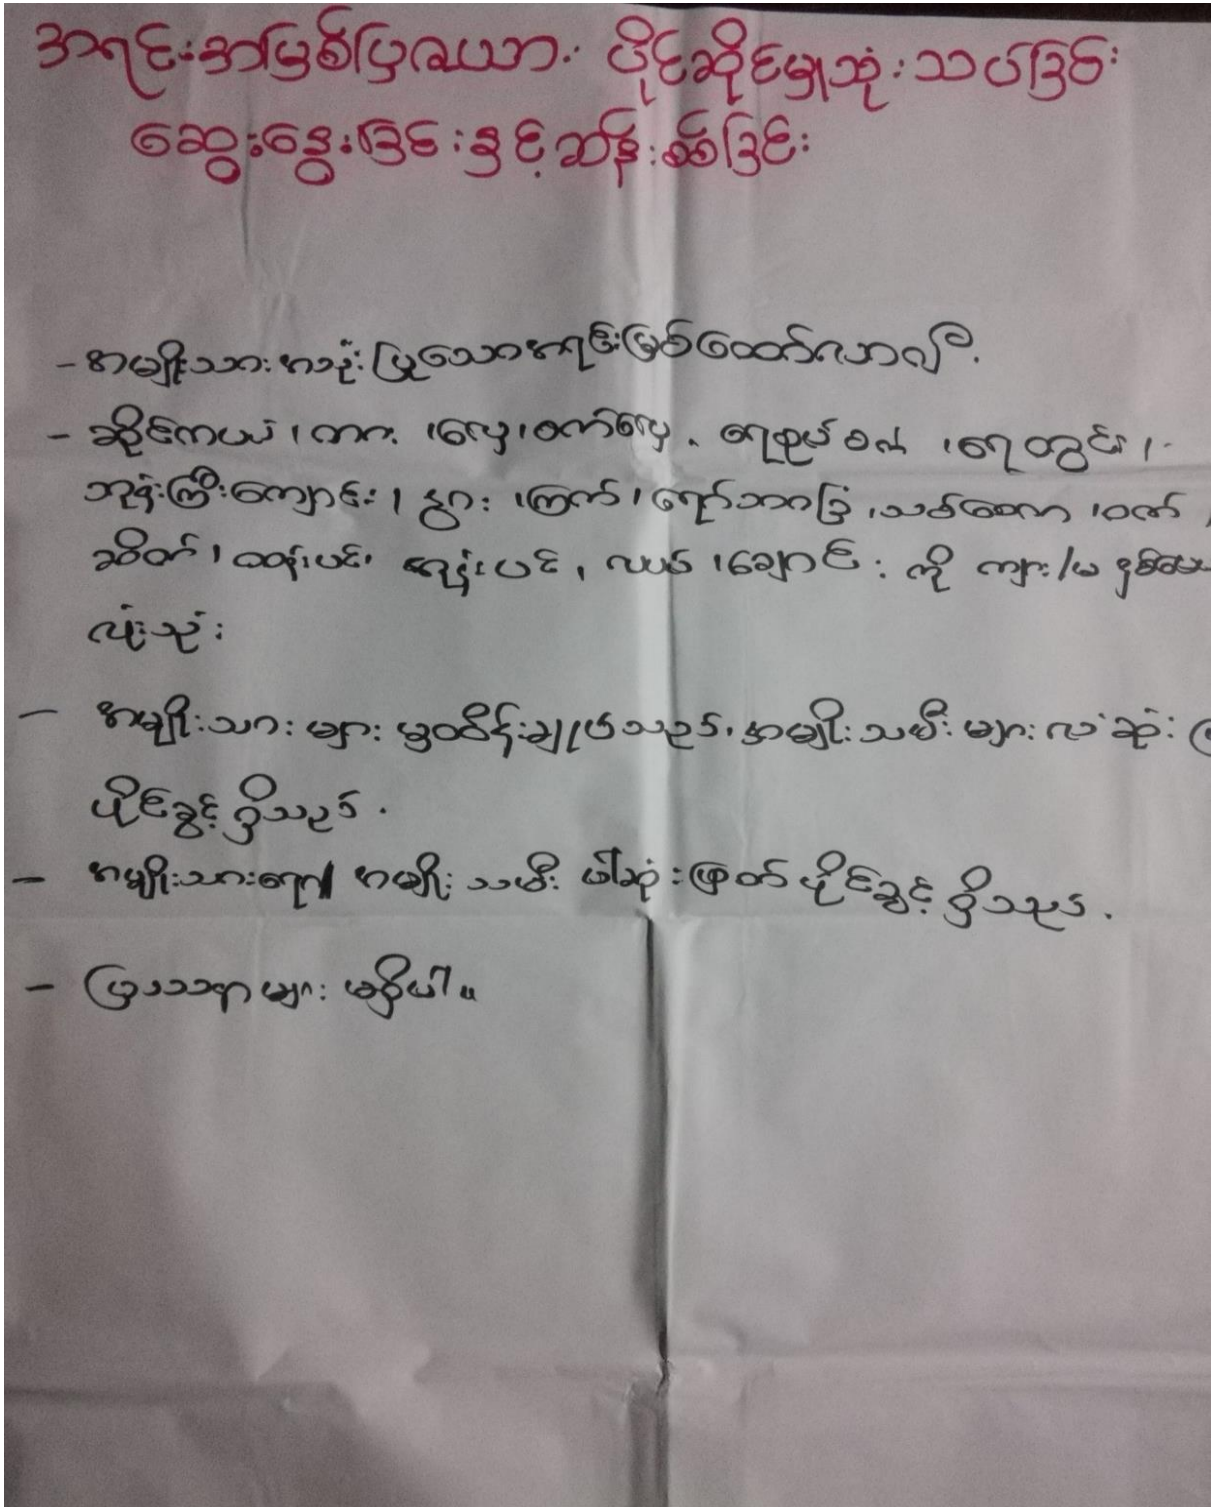 အရင်းအမြစ်ပြဇယား ပိုင်ဆိုင်မှုသုံးသပ်ခြင်း
ဆွေးနွေးခြင်းနှင့်ဆန်းစစ်ခြင်း
- အမျိုးသားအသုံးပြုသောအရင်းမြစ်
- ဆိုင်ကယ်၊ ကား၊ လှေ၊ စက်လှေ၊ ရေစုပ်စက်၊ ရေတွင်း၊
ဘုန်းကြီးကျောင်း၊ နွား၊ ကြက်၊ ရော်ဘာခြံ၊ သစ်တော၊ ဝက်၊
ဆိတ်၊ ထန်းပင်၊ အုန်းပင်၊ လယ်၊ ချောင်း ကို ကျား/မ
လုံးသုံး
- အမျိုးသားများ မှထိန်းချုပ်သည်၊ အမျိုးသမီးများလဲဆုံး
ပိုင်ခွင့်ရှိသည်.
- အမျိုးသားရော အမျိုးသမီး ပါဆုံးဖြတ်ပိုင်ခွင့်ရှိသည်.
- ပြဿနာများ မရှိပါ။